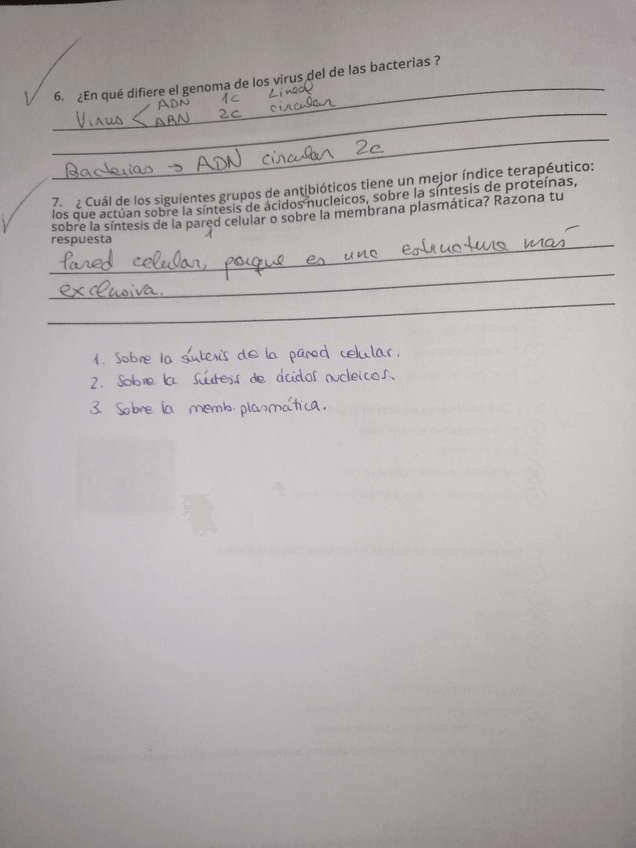 6. ¿En qué difiere el genoma de los virus del de las bacterias ?
Virus < ADN 1c Lineal
ARN 2c circular
Bacterias → ADN circular 2c
7. ¿ Cuál de los siguientes grupos de antibióticos tiene un mejor índice terapéutico:
los que actúan sobre la síntesis de ácidos nucleicos, sobre la síntesis de proteínas,
sobre la síntesis de la pared celular o sobre la membrana plasmática? Razona tu
respuesta
1
Pared celular, porque es una estructura más
exclusiva.
1. Sobre la síntesis de la pared celular.
2. Sobre la síntesis de ácidos nucleicos.
3. Sobre la memb. plasmática.